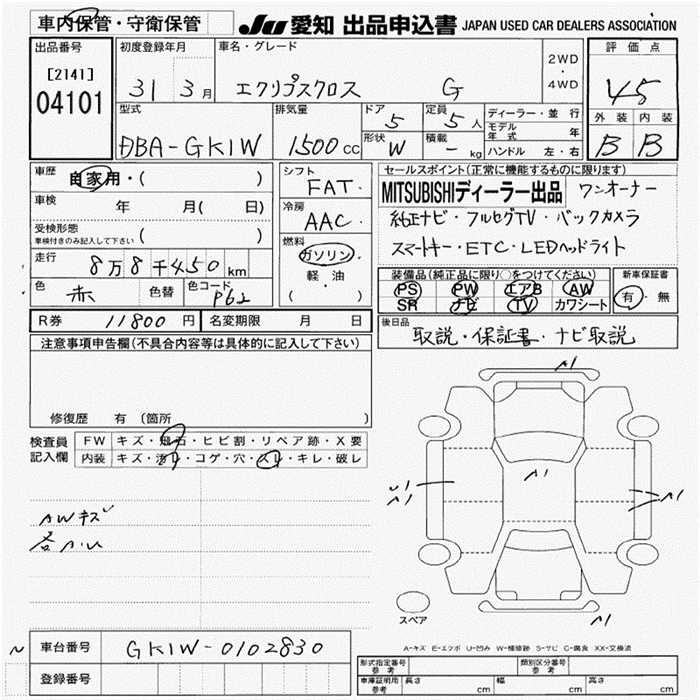 車内保管・守衛保管 JU 愛知 出品申込書 JAPAN USED CAR DEALERS ASSOCIATION
出品番号 初度登録年月 車名・グレード 2WD ・ 4WD 評価点
[2141] 04101 31 3月 エクリプスクロス G 4.5
型式 排気量 ドア 定員 ディーラー・並行 外装 内装
DBA-GK1W 1500cc 5 5人 モデル年式 年 B B
形状 W 積載 - kg ハンドル 左・右
車歴 自家用・( ) シフト FAT セールスポイント(正常に機能するものに限ります)
車検 年 月( 日) 冷房 AAC MITSUBISHIディーラー出品 ワンオーナー
受検形態 車検付きのみ記入して下さい ( ) 純正ナビ・フルセグTV・バックカメラ
走行 8万8千450km 燃料 ガソリン・軽・油 ( ) スマートキー・ETC・LEDヘッドライト
色 赤 色替 色コード P62 装備品(純正品に限り○をつけてください) 新車保証書
PS PW エアB AW 有・無
SR ナビ TV カワシート
R券 11800円 名変期限 月 日 後日品 取説・保証書・ナビ取説
注意事項申告欄(不具合内容等は具体的に記入して下さい)
修復歴 有 (箇所 )
検査員記入欄 FW キズ・飛石・ヒビ割・リペア跡・X要
内装 キズ・汚レ・コゲ・穴・スレ・キレ・破レ
A1
A1
U1
A1
A1
AWキズ
各A1U
スペア
A1
A-キズ E-エクボ U-凹み W-補修跡 S-サビ C-腐食 XX-交換済
車台番号 GK1W-0102830
登録番号
形式指定番号 参考 類別区分番号 参考
車庫証明用 参考 長さ cm 幅 cm 高さ cm